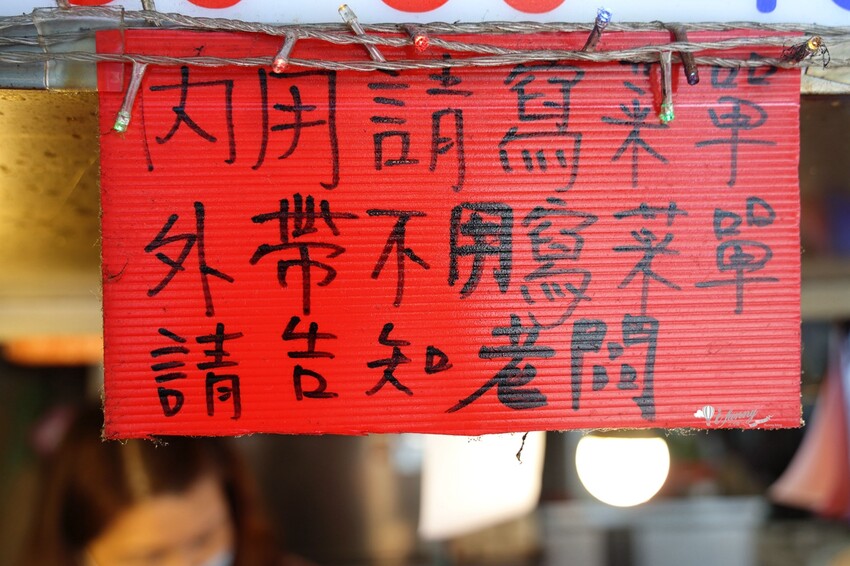 內用請寫菜單
外帶不用寫菜單
請告知老闆